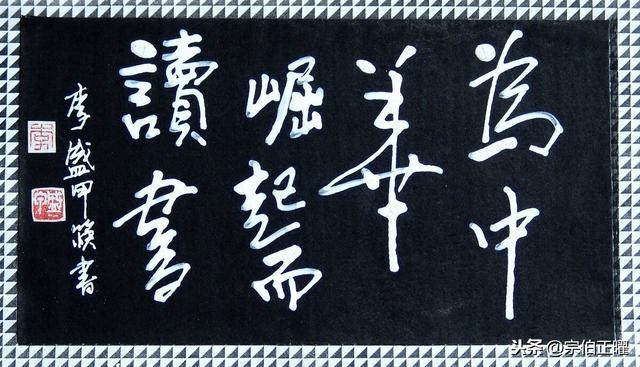 為中
華
崛起而
讀書
李盛甲筷書
头条 @宗伯正曜